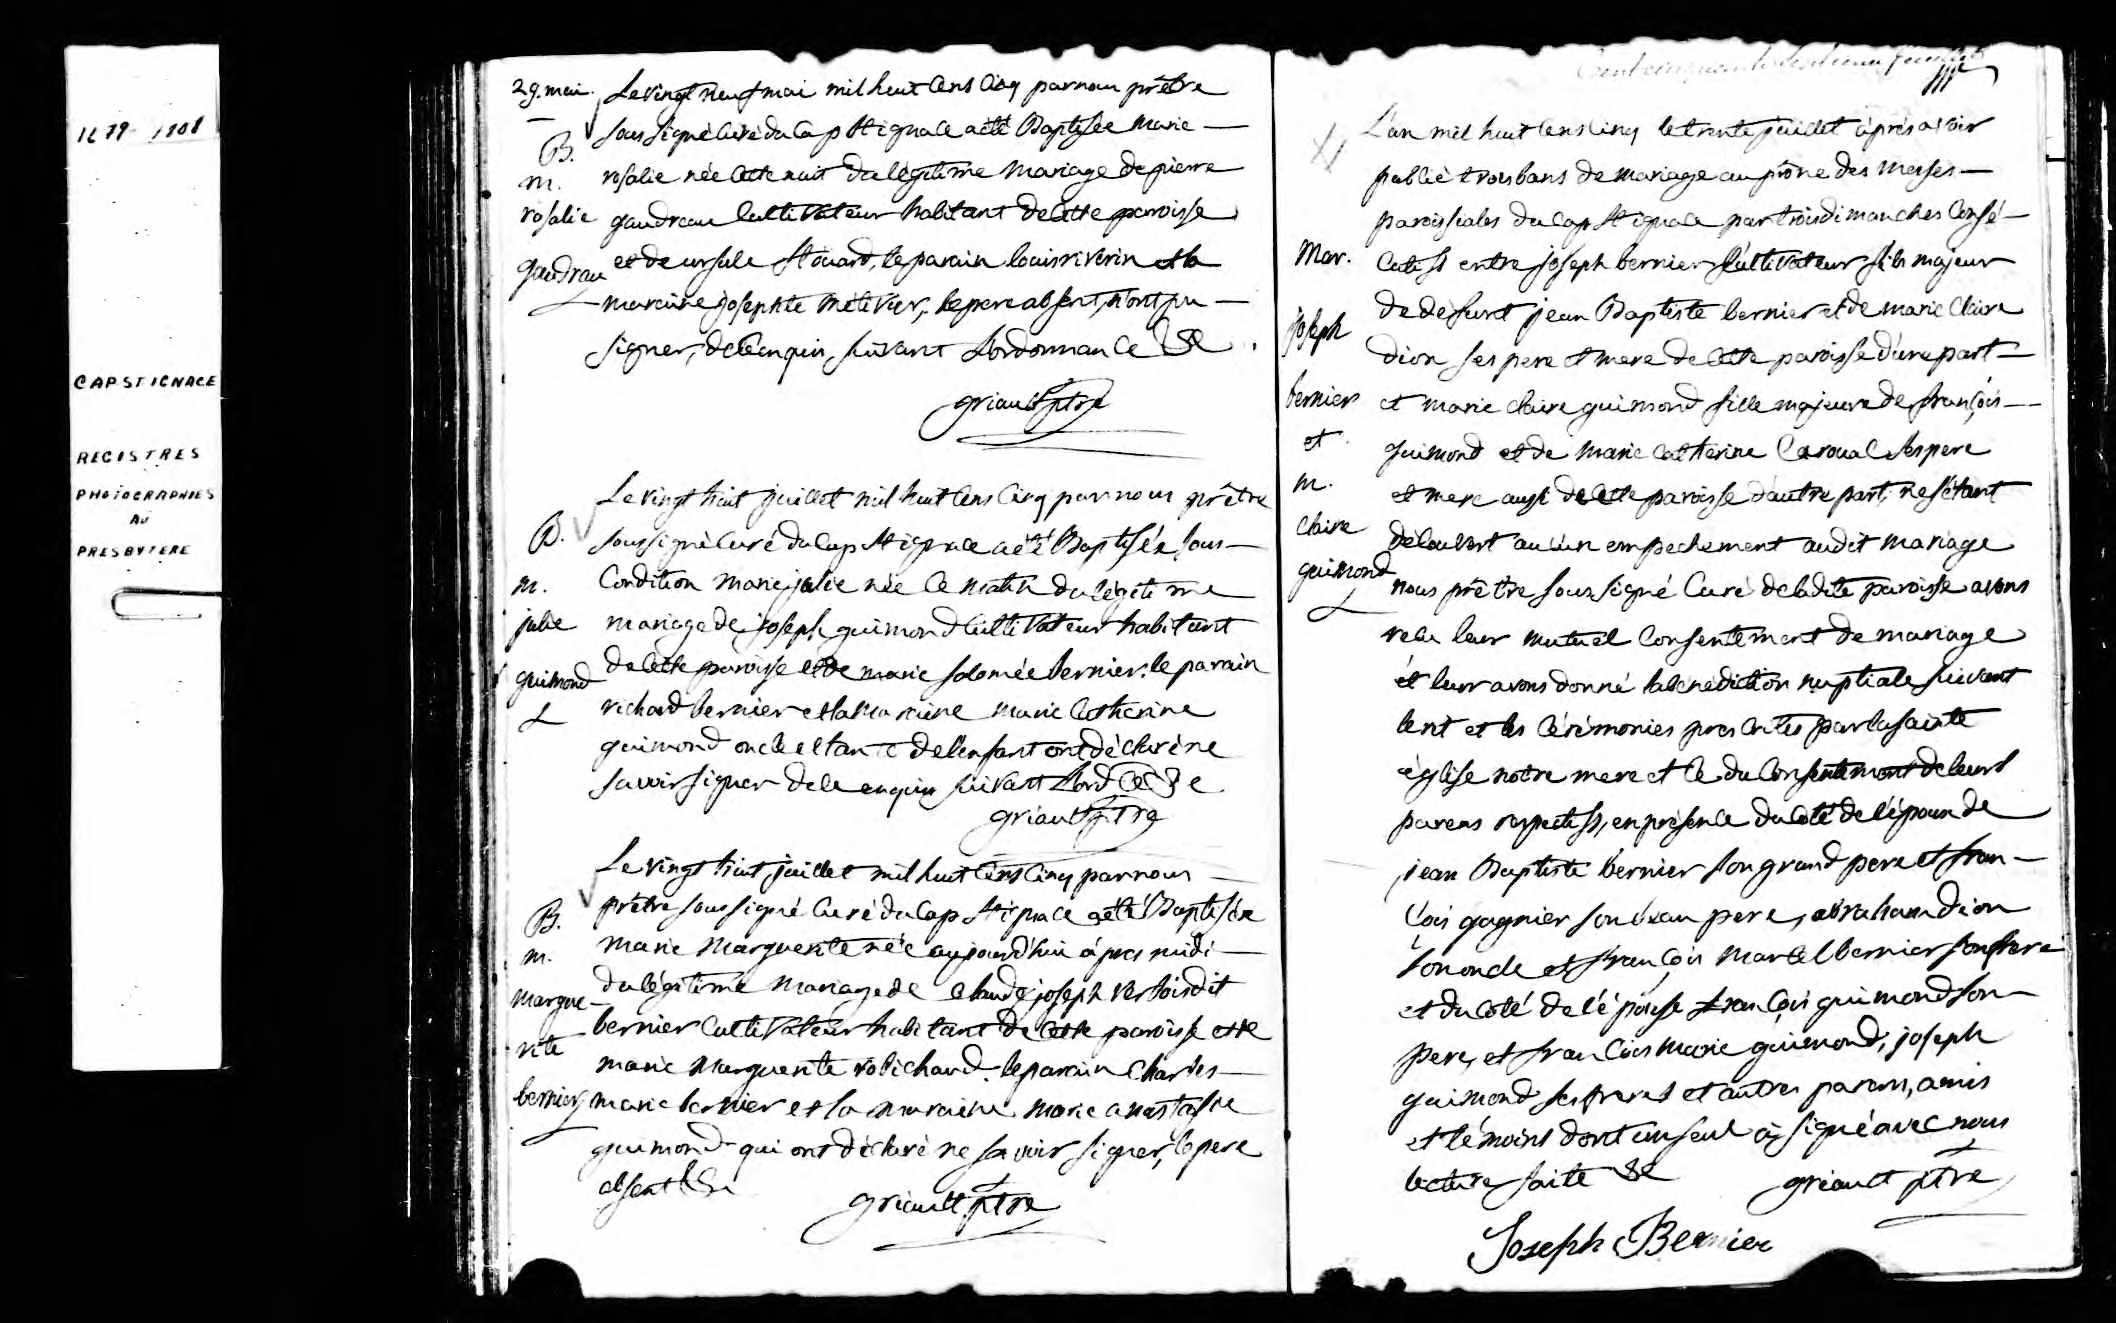 1679-1908
CAP ST IGNACE
REGISTRES
PHOTOGRAPHIES
AU
PRESBYTERE
29. mai.
B.
m.
rosalie
gaudreau
Le vingt neuf mai mil huit cens cinq par nous prêtre
sous signé curé du Cap St ignace a été Baptisée marie
rosalie née cette nuit du légitime mariage de pierre
gaudreau cultivateur habitant de cette paroisse
et de ursule, le parain louis riverin et la
maraine josephte métivier, le pere absent, n'ont pu
signer, de ce enquis, suivant l'ordonnance &c
griault ptre
B.
m.
julie
guimond
Le vingt huit juillet mil huit cens cinq par nous prêtre
sous signé curé du Cap St ignace a été Baptisée sous
condition marie julie née ce matin du légitime
mariage de joseph guimond cultivateur habitant
de cette paroisse et de marie salomée bernier. le parain
richard bernier et la maraine marie catherine
guimond oncle et tante de l'enfant ont déclaré ne
savoir signer de ce enquis suivant l'ordce &c
griault ptre
B.
m.
margue-
rite
bernier
Le vingt huit juillet mil huit cens cinq par nous
prêtre sous signé curé du Cap St ignace a été Baptisée
marie marguerite née aujourd'hui après midi
du légitime mariage de claude joseph dit
bernier cultivateur habitant de cette paroisse et de
marie marguerite robichaud. le parain charles
marie bernier et la maraine marie anastasie
guimond qui ont déclaré ne savoir signer, le pere
absent &c
griault ptre
Cent cinquante
Mar.
joseph
bernier
et
m.
claire
guimond
L'an mil huit cens cinq le trente juillet après avoir
publié trois bans de mariage au prône des messes
paroissiales du Cap St ignace par trois dimanches consé-
cutifs entre joseph bernier cultivateur fils majeur
de défunt jean Baptiste bernier et de marie claire
dion ses pere et mere de cette paroisse d'une part
et marie claire guimond fille majeure de françois
guimond et de marie catherine ses pere
et mere aussi de cette paroisse d'autre part, ne s'étant
découvert aucun empechement audit mariage
nous prêtre sous signé curé de ladite paroisse avons
recu leur mutuel consentement de mariage
et leur avons donné la bénédiction nuptiale suivant
les cérémonies prescrites par la sainte
église notre mere et ce du consentement de leurs
parens respectifs, en présence du coté de l'époux de
jean Baptiste bernier son grand pere et fran-
çois gagnier son beau pere, abraham dion
son oncle et françois marcel bernier son frere
et du coté de l'épouse françois guimond son
pere, et françois marie guimond, joseph
guimond ses freres et autres parens, amis
et témoins dont un seul a signé avec nous
lecture faite &c
griault ptre
Joseph Bernier